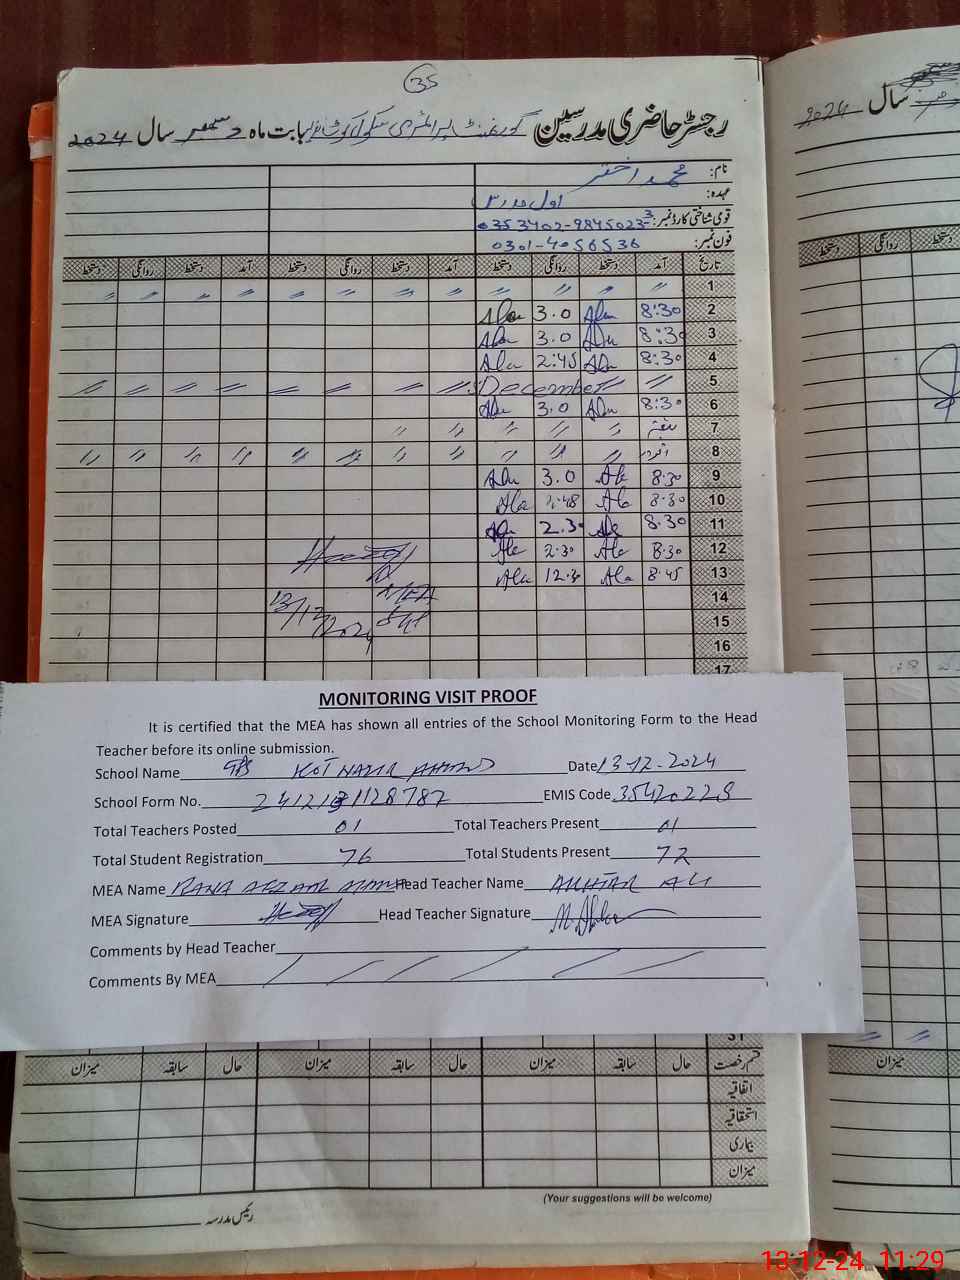 35
رجسٹر حاضری مدرسین گورنمنٹ پرائمری سکول کوٹ نذیر بابت ماہ دسمبر سال 2024
سال 2024
نام: محمد اختر
عہدہ: اول مدرس
قومی شناختی کارڈ نمبر: 35402-9845023-3
فون نمبر: 0301-4056536
تاریخ آمد دستخط روانگی دستخط آمد دستخط روانگی دستخط آمد دستخط روانگی دستخط
روانگی دستخط
1
2 8:30 3.0
3 8:30 3.0
4 8:30 2:45
5 December
6 8:30 3.0
7 ہفتہ
8 اتوار
9 8:30 3.0
10 8:30
11 8:30 2.30
12 8:30 2:30
13 8:45 12:30
14 MEA
13/12/2024
15
16
17
MONITORING VISIT PROOF
It is certified that the MEA has shown all entries of the School Monitoring Form to the Head
Teacher before its online submission.
School Name GPS KOT NAZIR AHMAD Date 13-12-2024
School Form No. EMIS Code 35420228
Total Teachers Posted 01 Total Teachers Present 01
Total Student Registration 76 Total Students Present 72
MEA Name RANA AFZAAL AHMAD Head Teacher Name AKHTAR ALI
MEA Signature Head Teacher Signature
Comments by Head Teacher
Comments By MEA
31
قسم رخصت حال سابقہ میزان حال سابقہ میزان حال سابقہ میزان
میزان
اتفاقیہ
استحقاقیہ
بیماری
میزان
(Your suggestions will be welcome)
رئیس مدرسہ
13-12-24 11:29